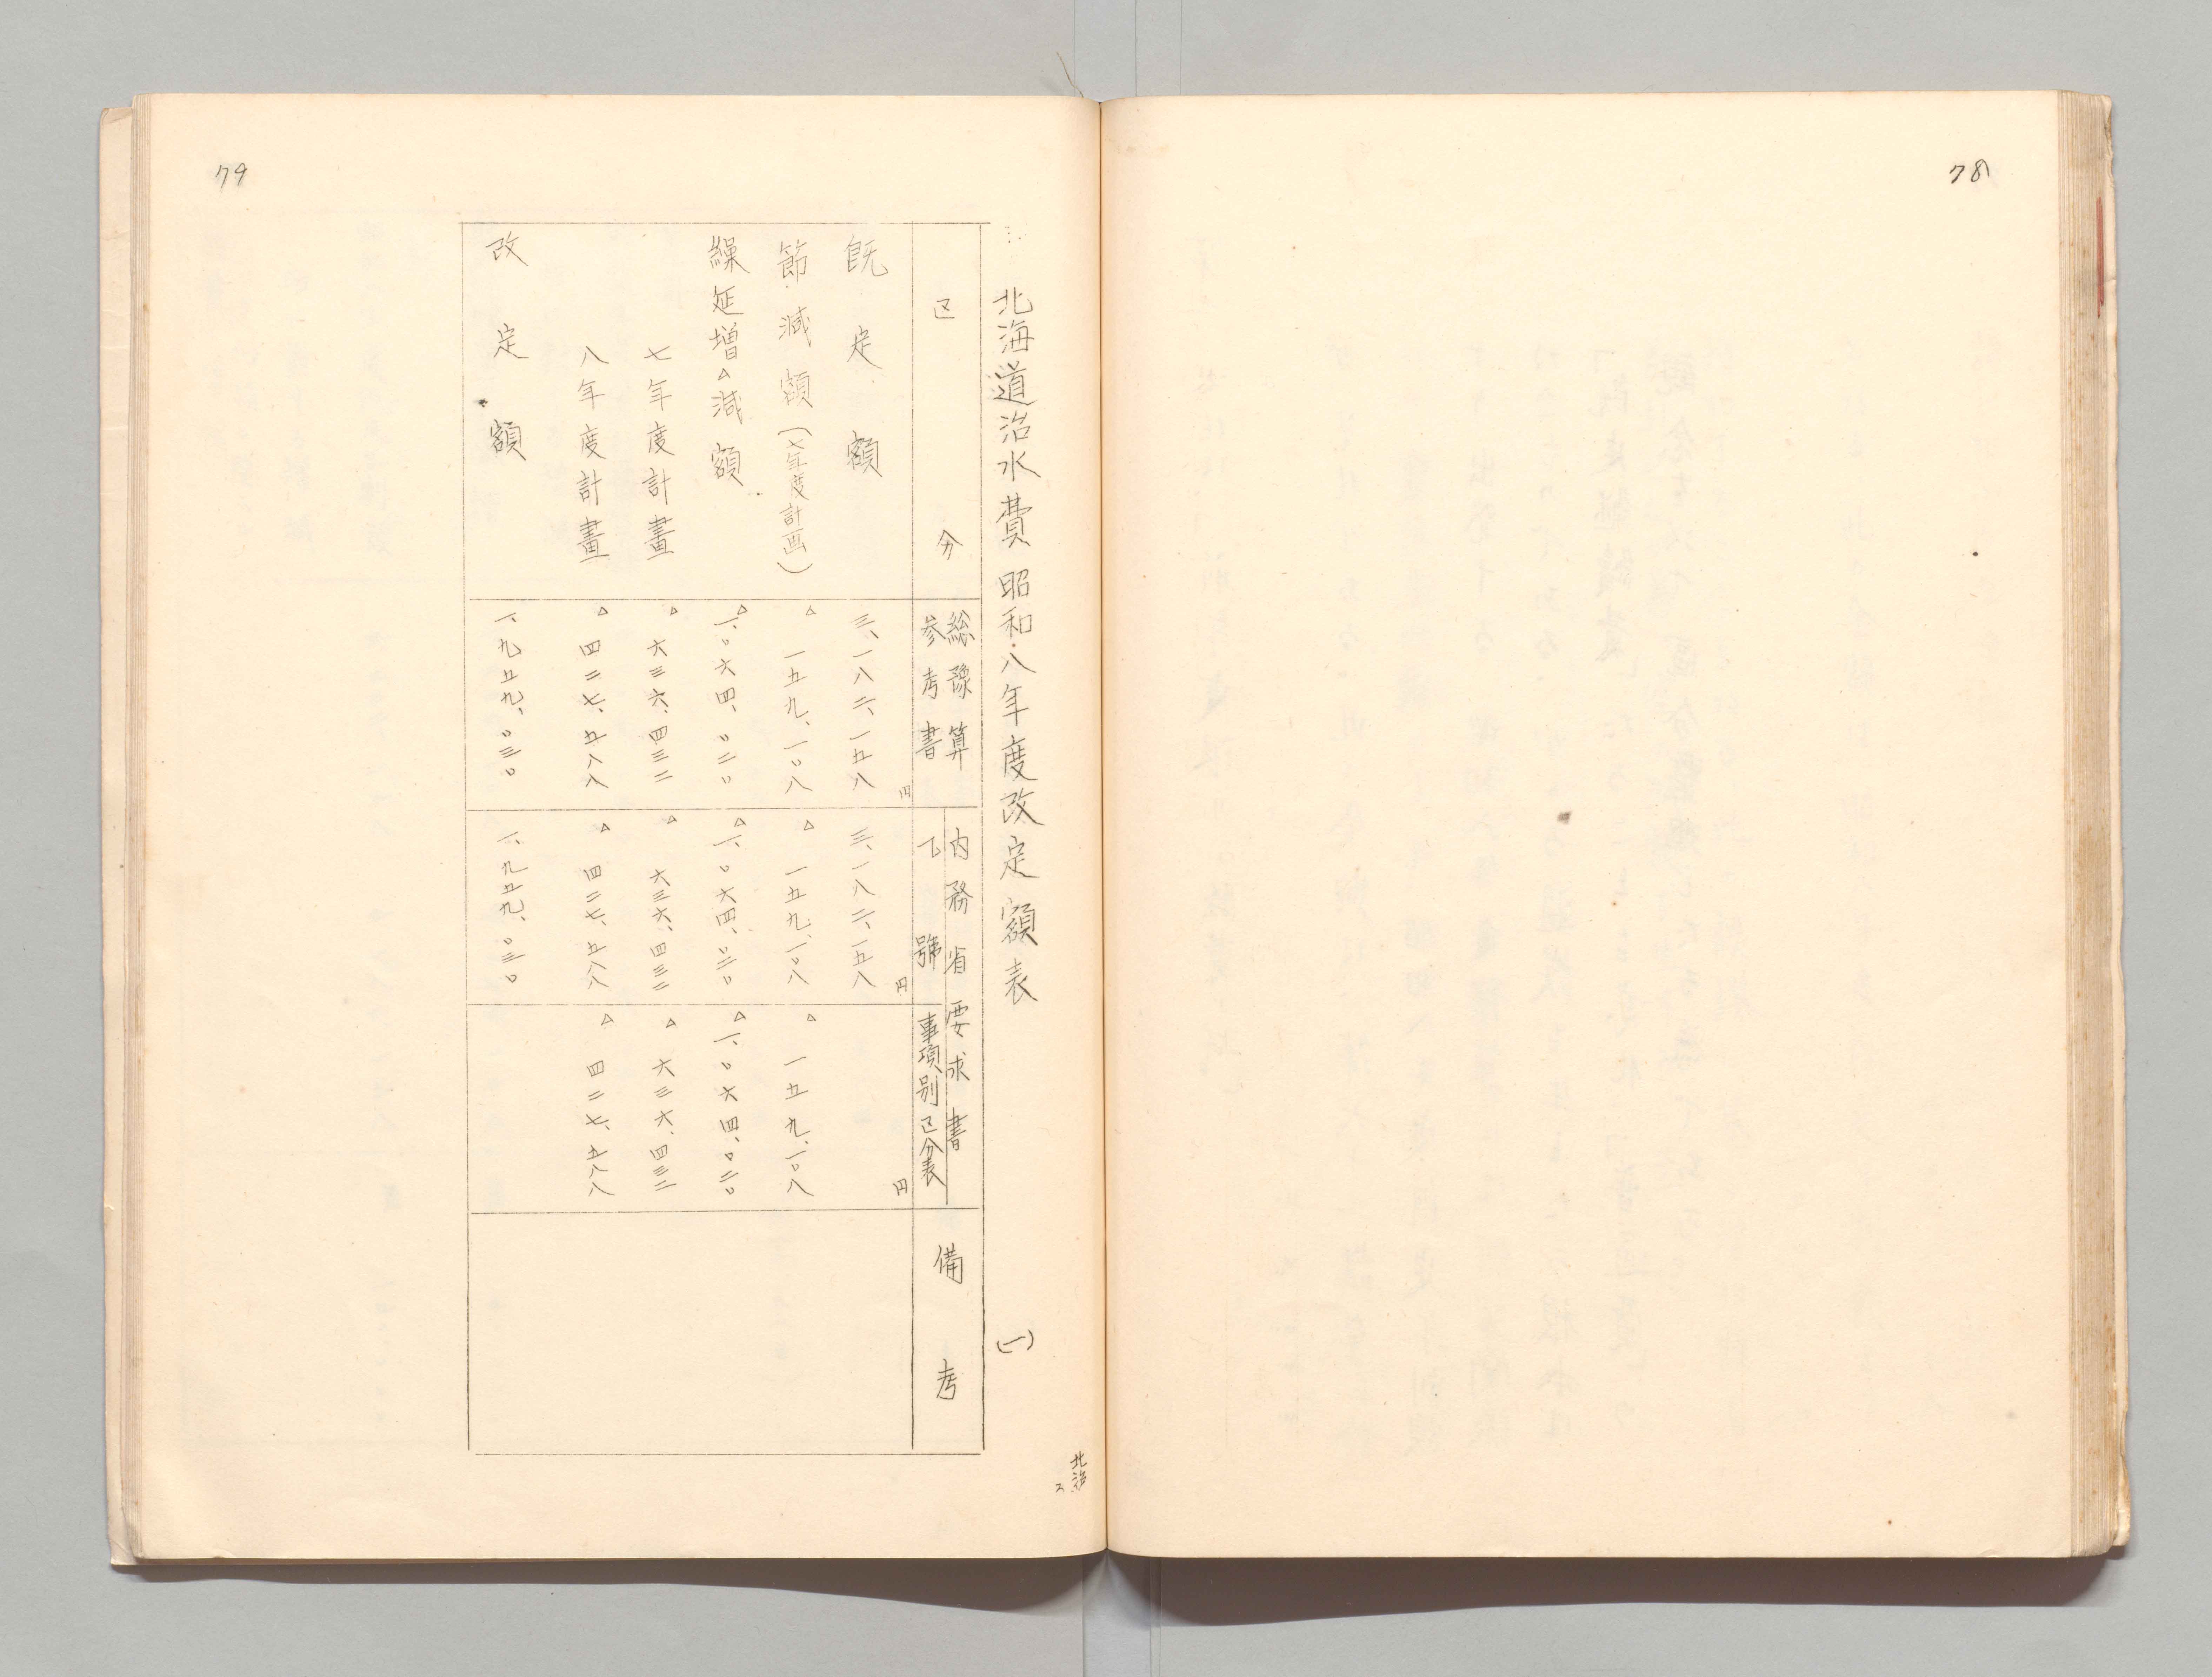 78
79
北海道治水費昭和八年度改定額表 (一)
区分
総豫算
参考書
内務省要求書
乙號
事項別区分表
備考
円
円
円
既定額 三、一八二、一五八 三、一八二、一五八
節減額(七年度計画) △一五九、一〇八 △一五九、一〇八 △一五九、一〇八
繰延増△減額 △一、〇六四、〇二〇 △一、〇六四、〇二〇 △一、〇六四、〇二〇
七年度計畫 △六三六、四三二 △六三六、四三二 △六三六、四三二
八年度計畫 △四二七、五八八 △四二七、五八八 △四二七、五八八
改定額 一、九五九、〇三〇 一、九五九、〇三〇
北治